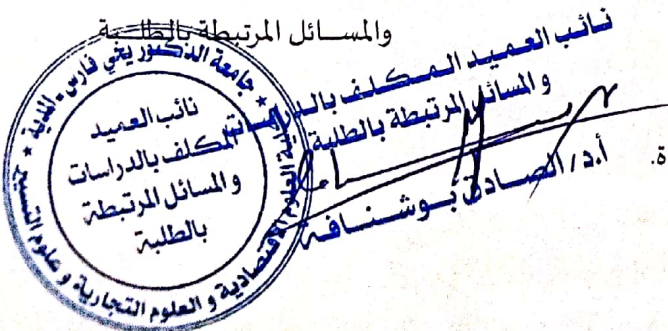 والمسائل المرتبطة بالطلبة
نائب العميد المكلف بالدراسات
و المسائل المرتبطة بالطلبة
أ.د/ الصادق بوشنافة
ة.
جامعة الدكتور يحي فارس - المدية
كلية العلوم الاقتصادية و العلوم التجارية و علوم التسيير
نائب العميد
المكلف بالدراسات
و المسائل المرتبطة
بالطلبة